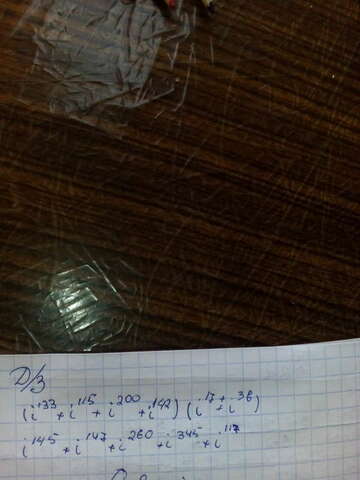 Д/з
(i¹³³ + i¹¹⁵ + i²⁰⁰ + i¹⁴²) (i¹⁷ + i³⁶)
i¹⁴⁵ + i¹⁴⁷ + i²⁶⁰ + i³⁴⁵ + i¹¹⁷